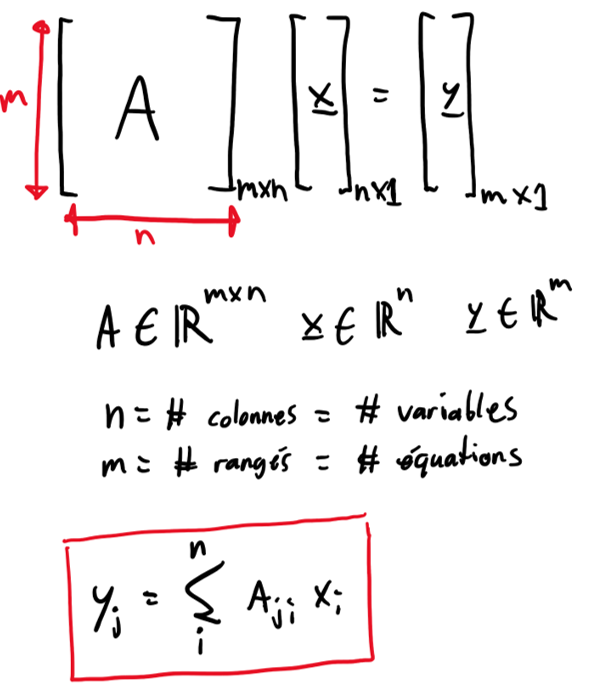 m [ A ]m×n [ x̲ ]n×1 = [ y̲ ]m×1
n
A ∈ ℝ^m×n x̲ ∈ ℝ^n y̲ ∈ ℝ^m
n = # colonnes = # variables
m = # rangés = # équations
y_j = Σ_i^n A_ji x_i